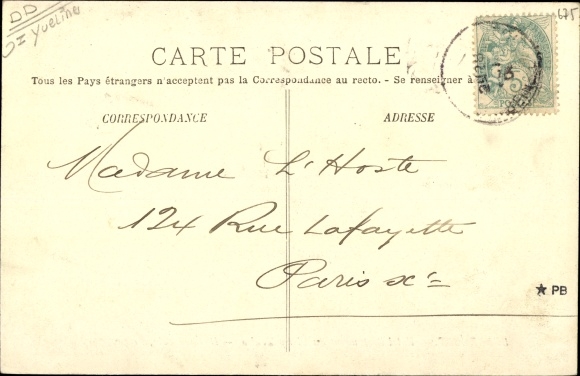 DD
Yveline
675
CARTE POSTALE
Tous les Pays étrangers n'acceptent pas la Correspondance au recto. - Se renseigner à
CORRESPONDANCE
ADRESSE
Madame L'Hoste
124 Rue Lafayette
Paris Xe
★ PB